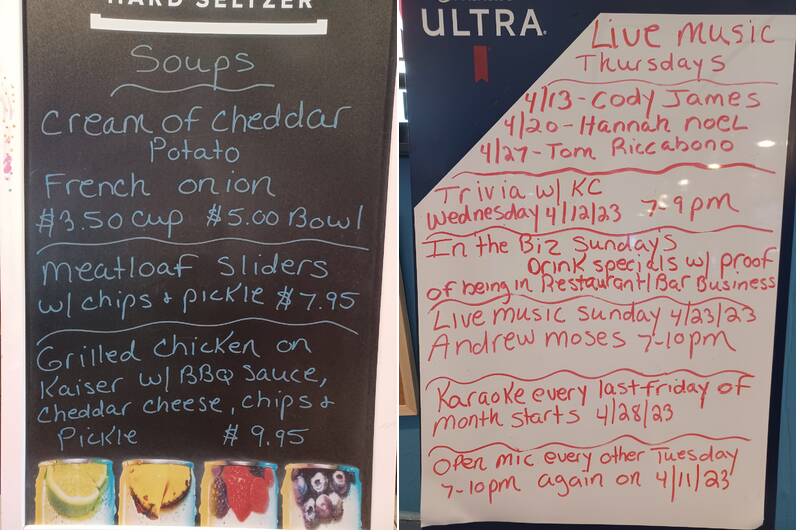 HARD SELTZER
Soups
Cream of Cheddar
Potato
French onion
$3.50 Cup $5.00 Bowl
Meatloaf Sliders
w/ chips & pickle $7.95
Grilled Chicken on
Kaiser w/ BBQ Sauce,
Cheddar cheese, chips &
Pickle $9.95
ULTRA
Live Music
Thursdays
4/13 - Cody James
4/20 - Hannah Noel
4/27 - Tom Riccabono
Trivia w/ KC
Wednesday 4/12/23 7-9pm
In the Biz Sunday's
Drink specials w/ proof
of being in Restaurant/Bar Business
Live music Sunday 4/23/23
Andrew Moses 7-10pm
Karaoke every last friday of
month starts 4/28/23
Open mic every other Tuesday
7-10pm again on 4/11/23